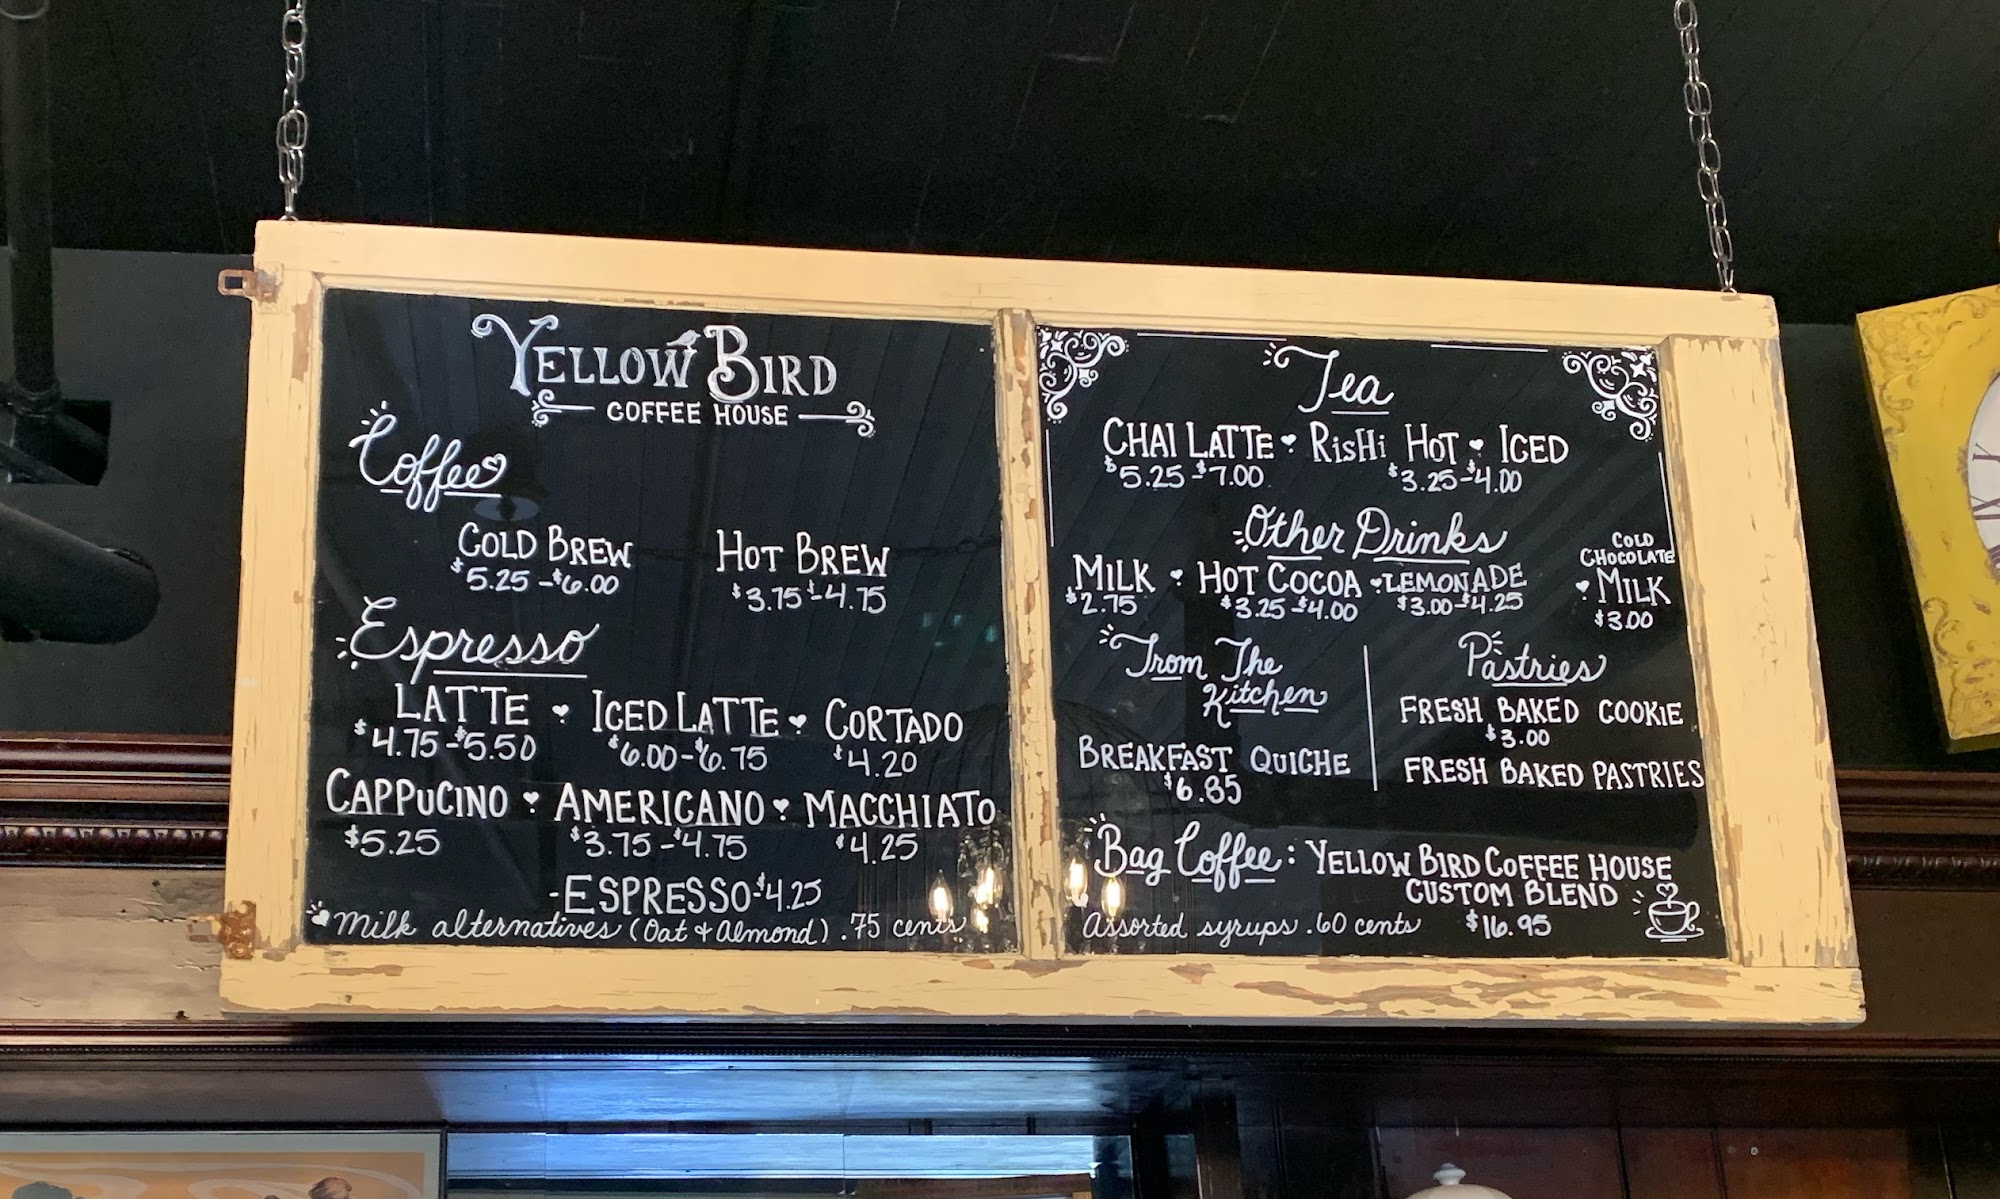 YELLOW BIRD
COFFEE HOUSE
Coffee
COLD BREW
$5.25 - $6.00
HOT BREW
$3.75 - $4.75
Espresso
LATTE ♥ ICED LATTE ♥ CORTADO
$4.75 - $5.50 $6.00 - $6.75 $4.20
CAPPUCINO ♥ AMERICANO ♥ MACCHIATO
$5.25 $3.75 - $4.75 $4.25
- ESPRESSO - $4.25
Milk alternatives (Oat + Almond) .75 cents
Tea
CHAI LATTE ♥ RISHI HOT ♥ ICED
$5.25 - $7.00 $3.25 - $4.00
Other Drinks
MILK ♥ HOT COCOA ♥ LEMONADE
$2.75 $3.25 - $4.00 $3.00 - $4.25
COLD
CHOCOLATE
♥ MILK
$3.00
From The
Kitchen
BREAKFAST QUICHE
$6.85
Pastries
FRESH BAKED COOKIE
$3.00
FRESH BAKED PASTRIES
Bag Coffee: YELLOW BIRD COFFEE HOUSE
CUSTOM BLEND
$16.95
Assorted syrups .60 cents